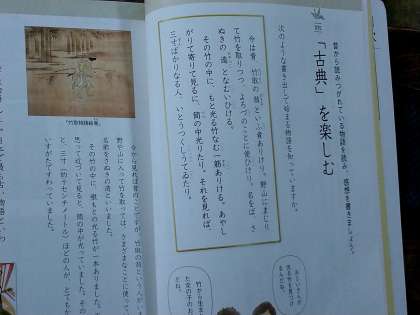 昔から読みつがれている物語を読み、感想を書きましょう。
「古典」を楽しむ
次のような書き出しで始まる物語を知っていますか。
今は昔、竹取の翁といふ者ありけり。野山にまじり
て竹を取りつつ、よろづのことに使ひけり。名をば、さ
ぬきの造となむいひける。
その竹の中に、もと光る竹なむ一筋ありける。あやし
がりて寄りて見るに、筒の中光りたり。それを見れば、
三寸ばかりなる人、いとうつくしうてゐたり。
「竹取物語絵巻」
今から見れば昔のことですが、竹取の翁という人がい
野や山に入って竹を取っては、さまざまなことに使って
名前をさぬきの造といいました。
その竹の中に、根もとの光る竹が一本ありました。
思って近づいて見ると、筒の中が光っていました。その
と、三寸(約十センチメートル)ほどの人が、とても
いすがたですわっていました。